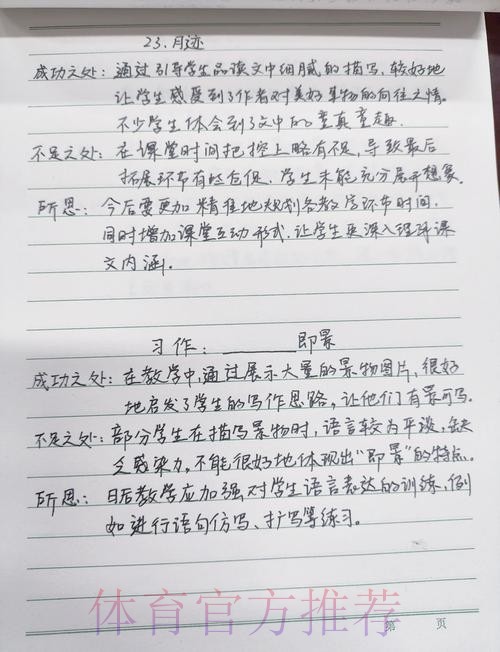 23.月迹
成功之处：通过引导学生品读文中细腻的描写，较好地
让学生感受到了作者对美好事物的向往之情。
不少学生体会到了文中的童真童趣。
不足之处：在课堂时间把控上略有不足，导致最后
拓展环节有些仓促，学生未能充分展开想象。
所思：今后要更加精准地规划各教学环节时间，
同时增加课堂互动形式，让学生更深入理解课
文内涵。
习作：______即景
成功之处：在教学中，通过展示大量的景物图片，很好
地启发了学生的写作思路，让他们有景可写。
不足之处：部分学生在描写景物时，语言较为平淡，缺
乏感染力，不能很好地体现出“即景”的特点。
所思：日后教学应加强对学生语言表达的训练，例
如进行语句仿写、扩写等练习。
体育官方推荐
第 页